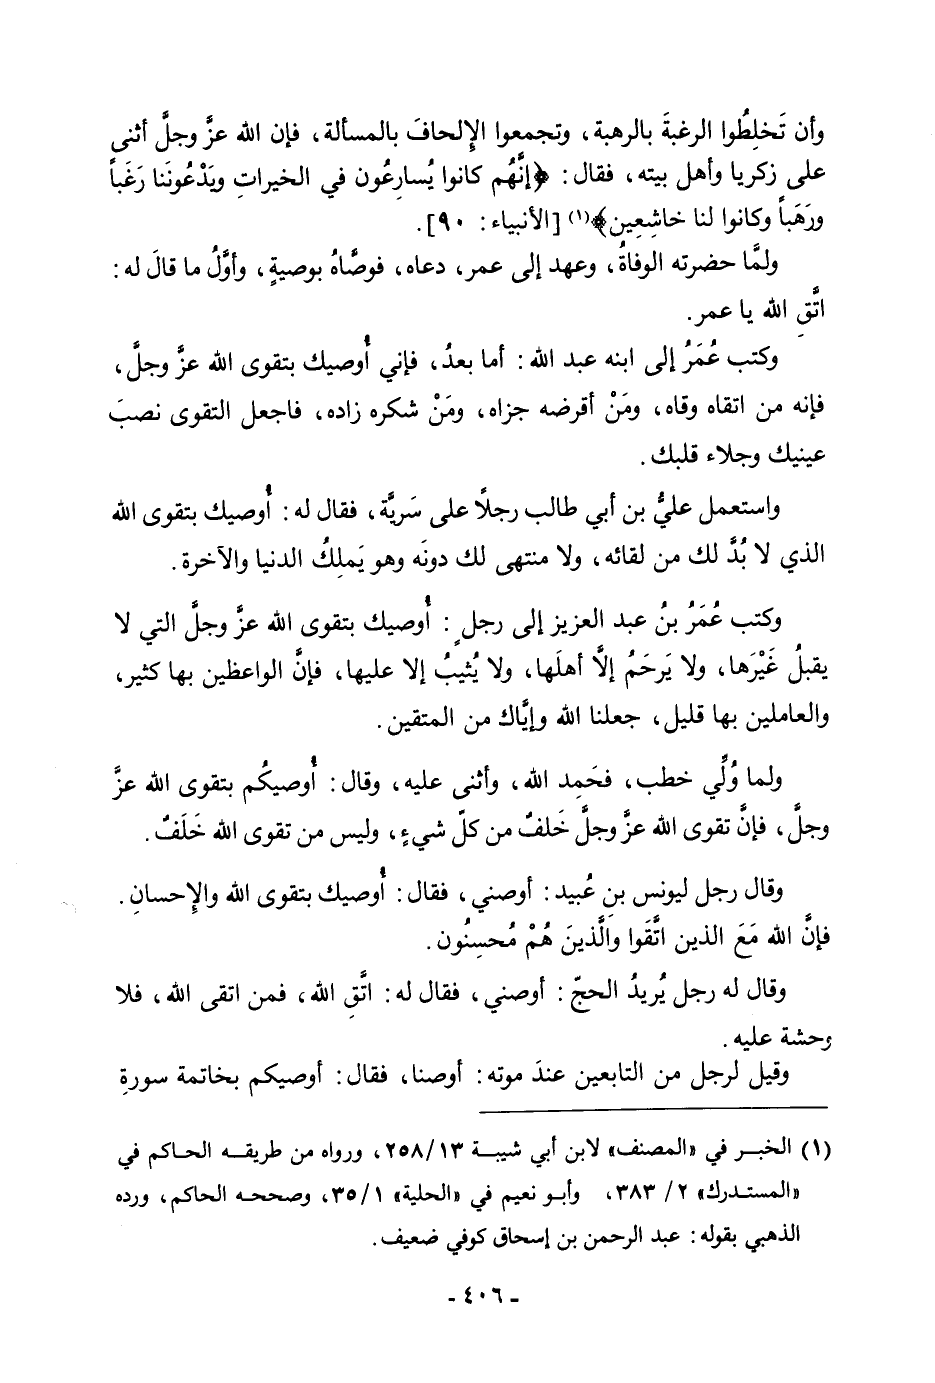 وأن تَخلِطُوا الرغبةَ بالرهبة، وتجمعوا الإلحافَ بالمسألة، فإن الله عزَّ وجلَّ أثنى
على زكريا وأهل بيته، فقال: ﴿إنَّهُم كانوا يُسارِعُون في الخيراتِ ويَدْعُونَنا رَغَباً
ورَهَباً وكانوا لنا خاشِعِين﴾(١) [الأنبياء: ٩٠].
ولمَّا حضرته الوفاةُ، وعهد إلى عمر، دعاه، فوصَّاهُ بوصيةٍ، وأوَّلُ ما قالَ له:
اتَّقِ الله يا عمر.
وكتب عُمَرُ إلى ابنه عبد الله: أما بعدُ، فإني أُوصيك بتقوى الله عزَّ وجلَّ،
فإنه من اتقاه وقاه، ومَنْ أقرضه جزاه، ومَنْ شكره زاده، فاجعل التقوى نصبَ
عينيك وجلاء قلبك.
واستعمل عليُّ بن أبي طالب رجلًا على سَريَّة، فقال له: أُوصيك بتقوى الله
الذي لا بُدَّ لك من لقائه، ولا منتهى لك دونَه وهو يَملِكُ الدنيا والآخرة.
وكتب عُمَرُ بنُ عبد العزيز إلى رجلٍ: أُوصيك بتقوى الله عزَّ وجلَّ التي لا
يقبلُ غَيْرَها، ولا يَرحَمُ إلَّا أهلَها، ولا يُثيبُ إلا عليها، فإنَّ الواعظين بها كثير،
والعاملين بها قليل، جعلنا الله وإيَّاك من المتقين.
ولما وُلِّي خطب، فحَمِد الله، وأثنى عليه، وقال: أُوصيكُم بتقوى الله عزَّ
وجلَّ، فإنَّ تقوى الله عزَّ وجلَّ خَلفٌ من كلّ شيءٍ، وليس من تقوى الله خَلَفٌ.
وقال رجل ليونس بن عُبيد: أوصني، فقال: أُوصيك بتقوى الله والإحسانِ.
فإنَّ الله مَعَ الذين اتَّقَوا والَّذينَ هُمْ مُحسِنُون.
وقال له رجل يُريدُ الحجّ: أوصني، فقال له: اتَّقِ الله، فمن اتقى الله، فلا
وحشة عليه.
وقيل لرجل من التابعين عندَ موته: أوصنا، فقال: أوصيكم بخاتمة سورةِ
(١) الخبر في «المصنف» لابن أبي شيبة ٢٥٨/١٣، ورواه من طريقه الحاكم في
«المستدرك» ٢/ ٣٨٣، وأبو نعيم في «الحلية» ٣٥/١، وصححه الحاكم، ورده
الذهبي بقوله: عبد الرحمن بن إسحاق كوفي ضعيف.
- ٤٠٦ -